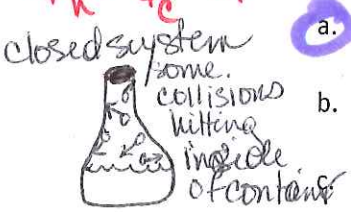 closed system
some.
collisions
hitting
inside
of contain
a.
b.
c.